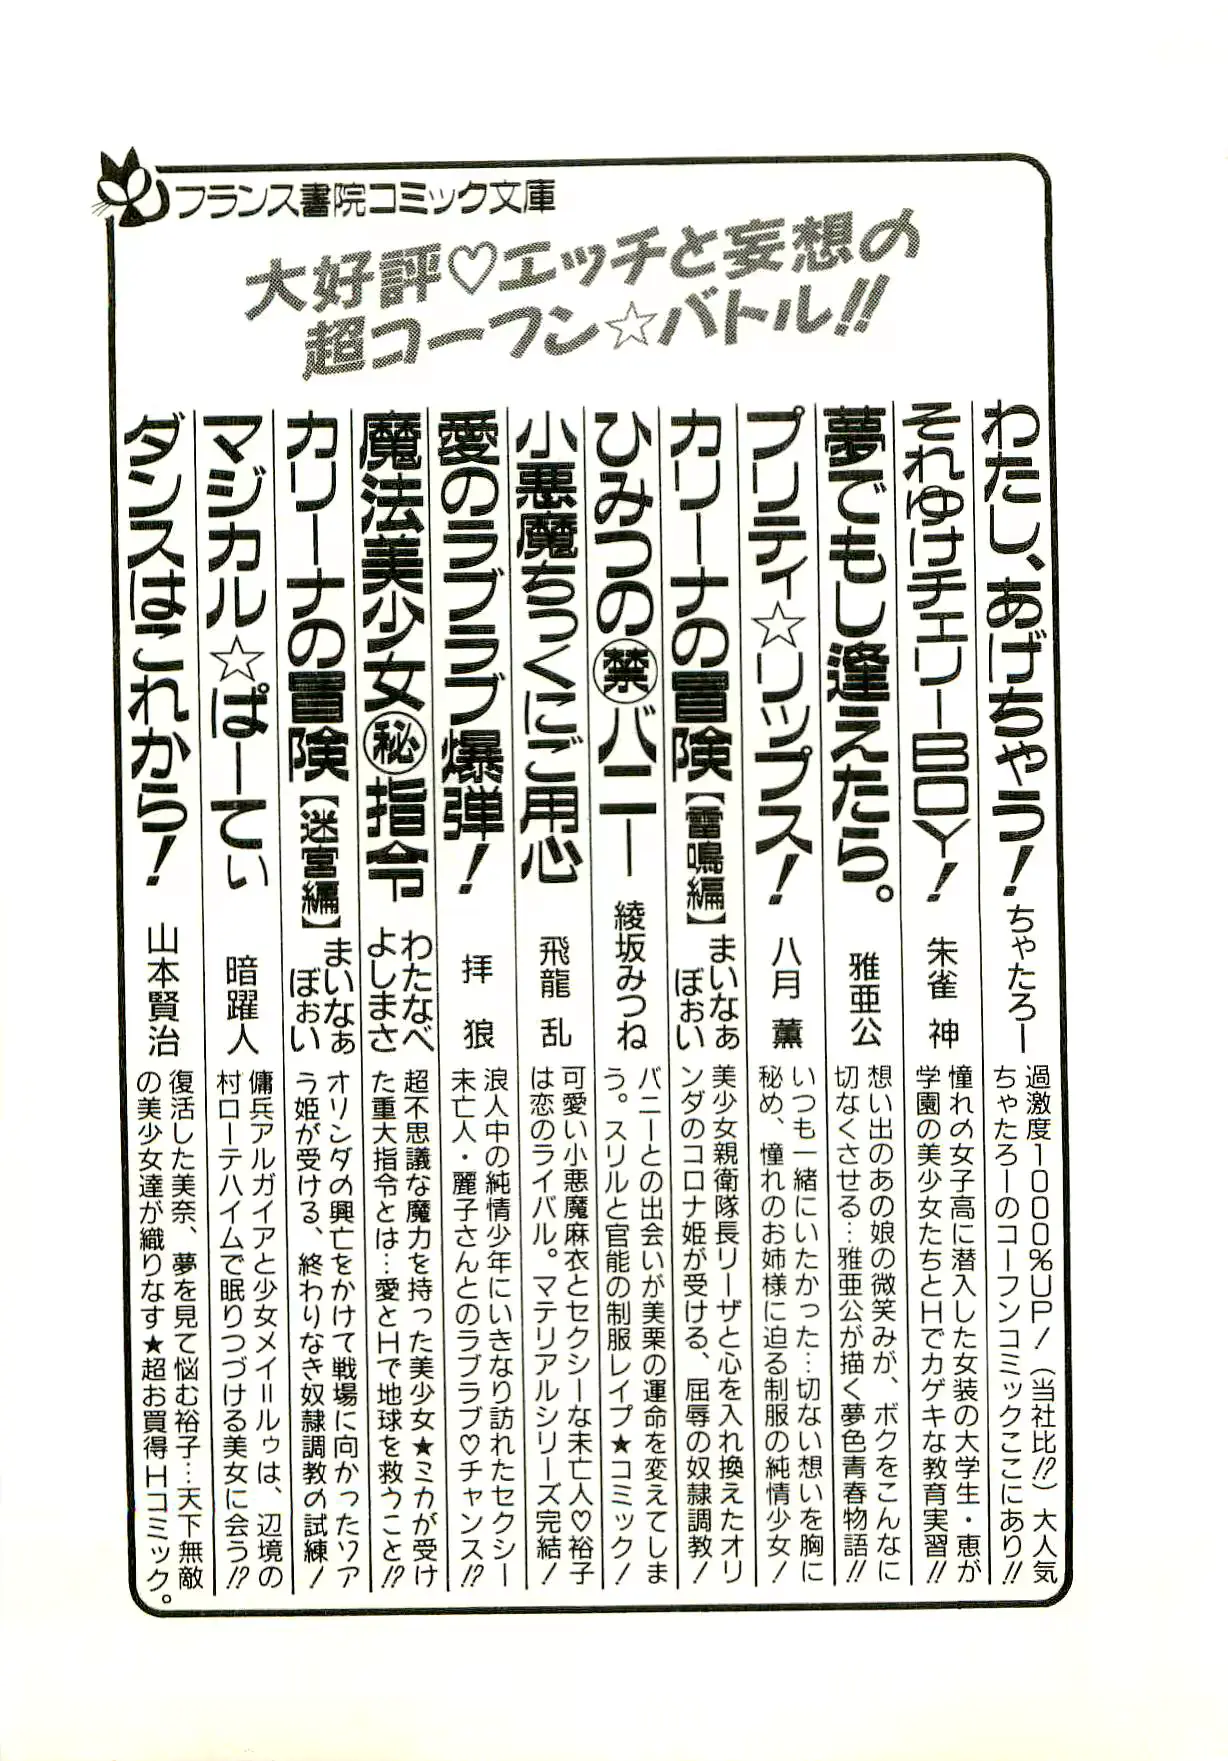 フランス書院コミック文庫
大好評♡エッチと妄想の
超コーフン☆バトル!!
わたし、あげちゃう!
ちゃたろー
過激度1000%UP!(当社比!?)大人気
ちゃたろーのコーフンコミックここにあり!!
それゆけチェリーBOY!
朱雀 神
憧れの女子高に潜入した女装の大学生・恵が
学園の美少女たちとHでカゲキな教育実習!!
夢でもし逢えたら。
雅亜公
想い出のあの娘の微笑みが、ボクをこんなに
切なくさせる…雅亜公が描く夢色青春物語!!
プリティ☆リップス!
八月 薫
いつも一緒にいたかった…切ない想いを胸に
秘め、憧れのお姉様に迫る制服の純情少女!
カリーナの冒険【雷鳴編】
まいなぁ
ぼぉい
美少女親衛隊長リーザと心を入れ換えたオリ
ンダのコロナ姫が受ける、屈辱の奴隷調教!
ひみつの㊝バニー
綾坂みつね
バニーとの出会いが美栗の運命を変えてしま
う。スリルと官能の制服レイプ★コミック!
小悪魔ちっくにご用心
飛龍 乱
可愛い小悪魔麻衣とセクシーな未亡人♡裕子
は恋のライバル。マテリアルシリーズ完結!
愛のラブラブ爆弾!
拝 狼
浪人中の純情少年にいきなり訪れたセクシー
未亡人・麗子さんとのラブラブ♡チャンス!?
魔法美少女㊙指令
わたなべ
よしまさ
超不思議な魔力を持った美少女★ミカが受け
た重大指令とは…愛とHで地球を救うこと!?
カリーナの冒険【迷宮編】
まいなぁ
ぼぉい
オリンダの興亡をかけて戦場に向かったソア
ラ姫が受ける、終わりなき奴隷調教の試練!
マジカル☆ぱーてぃ
暗躍人
傭兵アルガイアと少女メイ=ルゥは、辺境の
村ローテハイムで眠りつづける美女に会う!?
ダンスはこれから!
山本賢治
復活した美奈、夢を見て悩む裕子…天下無敵
の美少女達が織りなす★超お買得Hコミック。